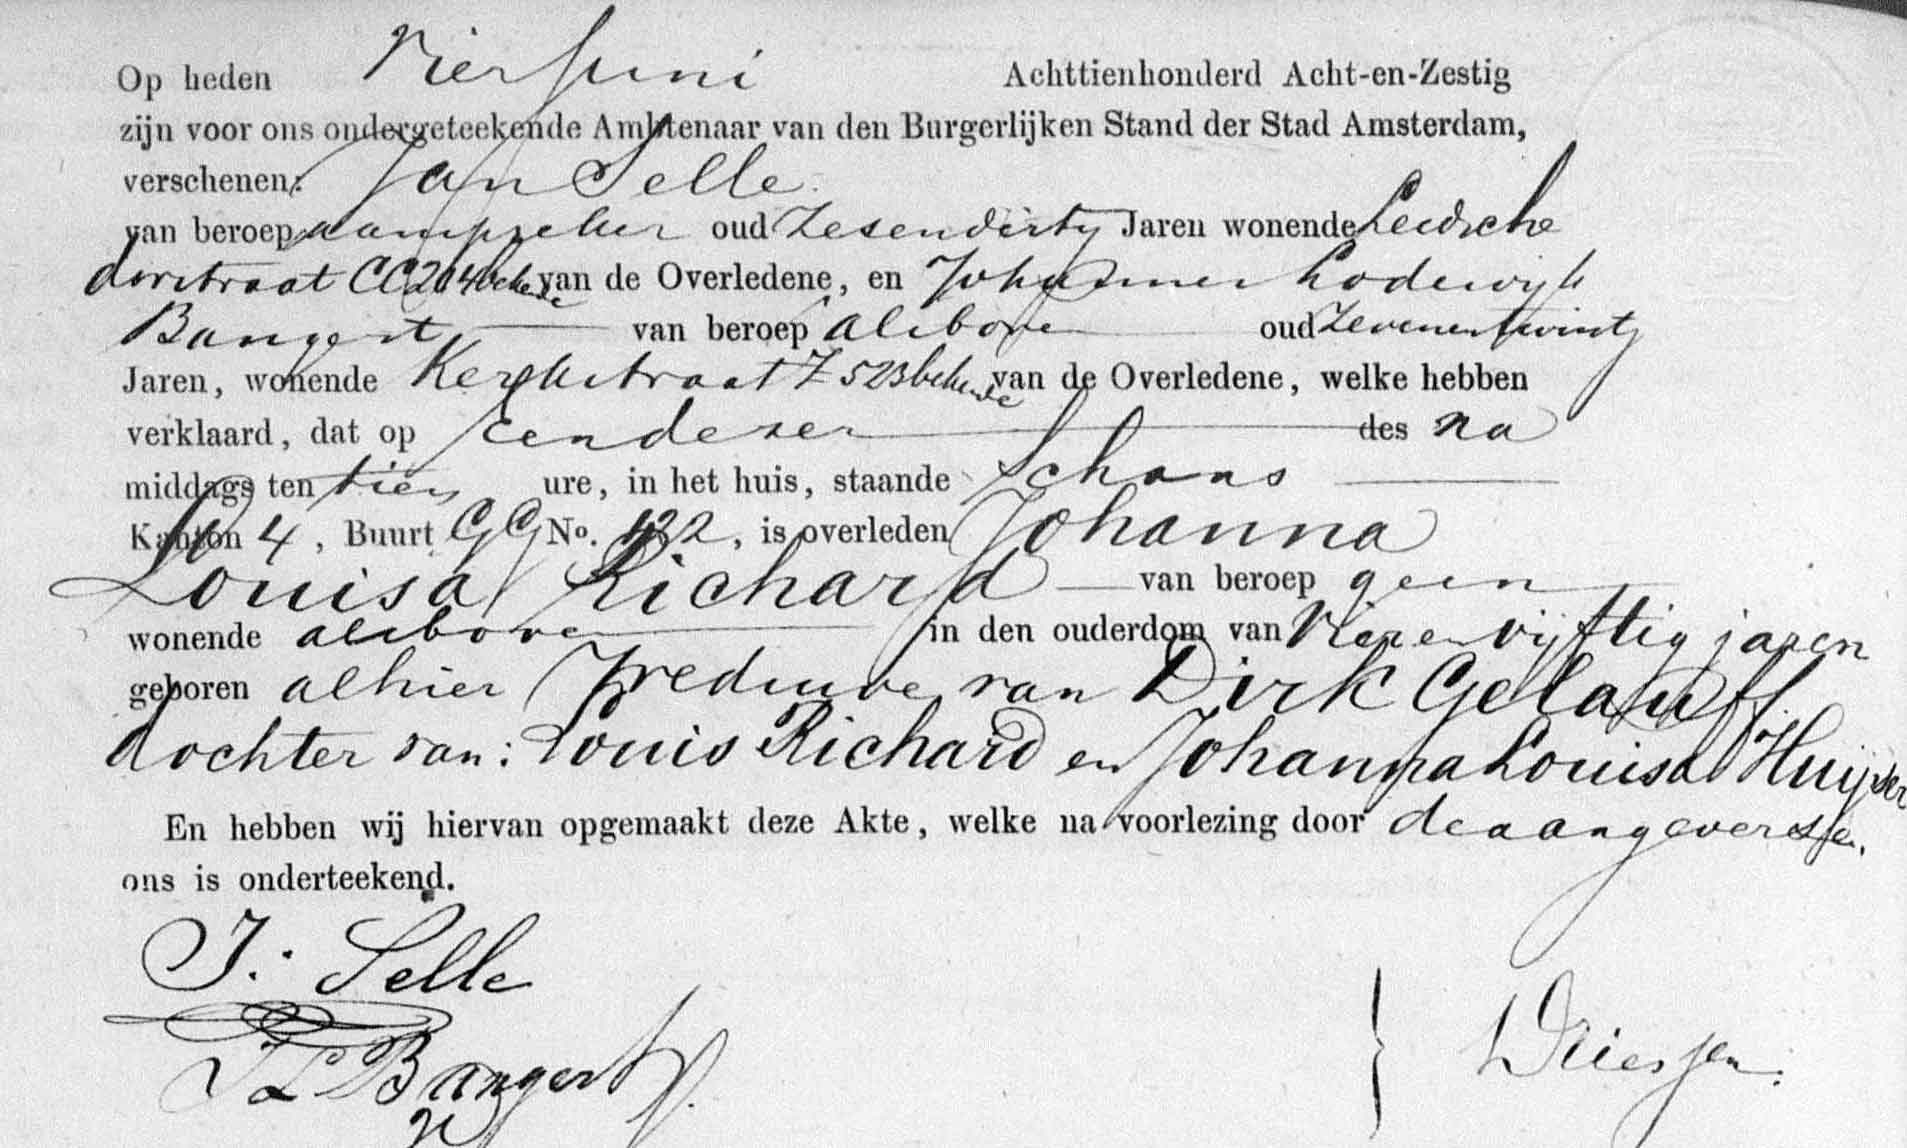 Op heden Vier Juni Achttienhonderd Acht-en-Zestig
zijn voor ons ondergeteekende Ambtenaar van den Burgerlijken Stand der Stad Amsterdam,
verschenen: Jan Selle
van beroep aanspreker oud Zesendirtig Jaren wonende Leidsche
dwrstraat CC204 bekende van de Overledene, en Johannes Lodewijk
Bangert van beroep alsboven oud Zevenentwintig
Jaren, wonende Kerkstraat Z 523 bekende van de Overledene, welke hebben
verklaard, dat op Eendezer des na
middags ten tien ure, in het huis, staande Schans
Kanton 4, Buurt GG No. 422, is overleden Johanna
Louisa Richard van beroep geen
wonende alsboven in den ouderdom van Vierenvijftig jaren
geboren alhier Weduwe van Dirk Gelauff
dochter van: Louis Richard en Johanna Louisa Huijser
En hebben wij hiervan opgemaakt deze Akte, welke na voorlezing door de aangevers en
ons is onderteekend.
J. Selle
J L Bangert
Driessen